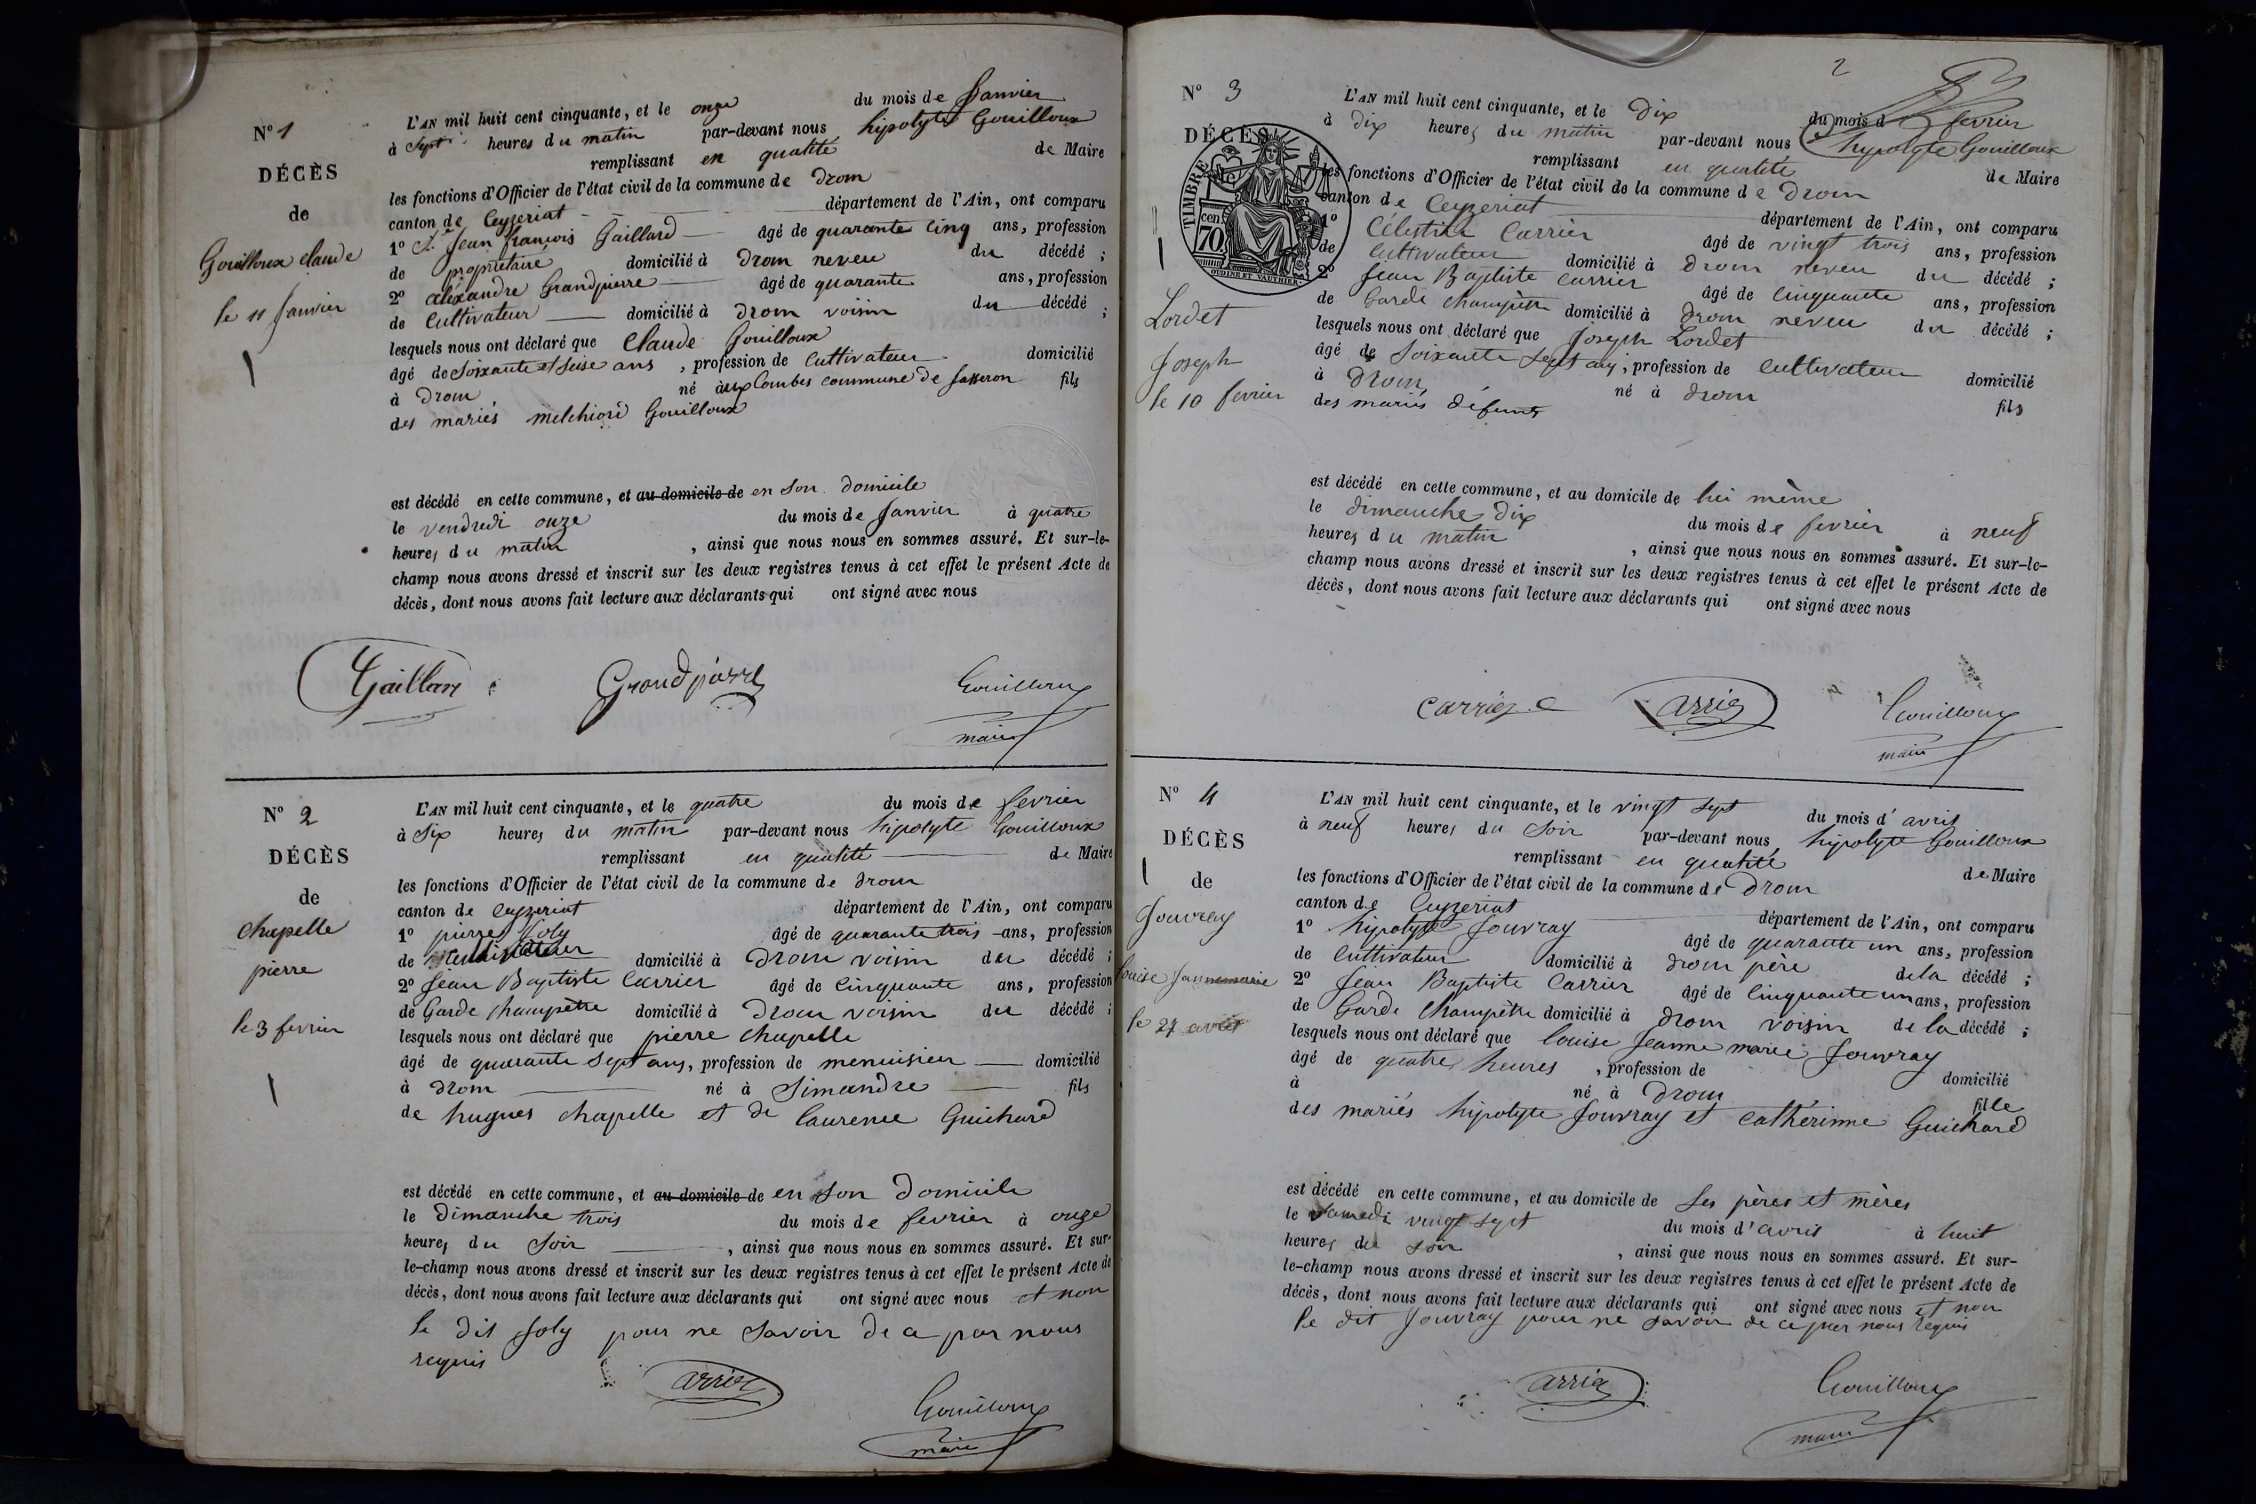 N° 1
DÉCÈS
de
Gouilloux claude
le 11 Janvier
L'AN mil huit cent cinquante, et le onze du mois de Janvier
à sept heures du matin par-devant nous hipolyte Gouilloux
remplissant en qualité de Maire
les fonctions d'Officier de l'état civil de la commune de Drom
canton de Ceyzeriat département de l'Ain, ont comparu
1° S. Jean françois Gaillard âgé de quarante cinq ans, profession
de propriétaire domicilié à Drom neveu du décédé ;
2° aléxandre Grandpierre âgé de quarante ans, profession
de cultivateur domicilié à Drom voisin du décédé ;
lesquels nous ont déclaré que Claude Gouilloux
âgé de soixante et seise ans, profession de cultivateur domicilié
à Drom né à aux Combes commune de Jasseron fils
des mariés melchior Gouilloux
est décédé en cette commune, et au domicile de en son domicile
le vendredi onze du mois de Janvier à quatre
heures du matin, ainsi que nous nous en sommes assuré. Et sur-le-
champ nous avons dressé et inscrit sur les deux registres tenus à cet effet le présent Acte de
décès, dont nous avons fait lecture aux déclarants qui ont signé avec nous
Gaillard Grandpierre Gouilloux
maire
N° 2
DÉCÈS
de
chapelle
pierre
le 3 fevrier
L'AN mil huit cent cinquante, et le quatre du mois de fevrier
à six heures du matin par-devant nous hipolyte Gouilloux
remplissant en qualité de Maire
les fonctions d'Officier de l'état civil de la commune de Drom
canton de Ceyzeriat département de l'Ain, ont comparu
1° pierre Joly âgé de quarante trois ans, profession
de domicilié à Drom voisin du décédé ;
2° Jean Baptiste Carrier âgé de cinquante ans, profession
de Garde champètre domicilié à Drom voisin du décédé ;
lesquels nous ont déclaré que pierre chapelle
âgé de quarante sept ans, profession de menuisier domicilié
à Drom né à Simandre fils
de hugues chapelle et de laurence Guichard
est décédé en cette commune, et au domicile de en son domicile
le dimanche trois du mois de fevrier à onze
heures du soir, ainsi que nous nous en sommes assuré. Et sur-
le-champ nous avons dressé et inscrit sur les deux registres tenus à cet effet le présent Acte de
décès, dont nous avons fait lecture aux déclarants qui ont signé avec nous et non
le dit Joly pour ne savoir de ce par nous
requis
Carrier Gouilloux
maire
2
N° 3
DÉCÈS
TIMBRE
70 cen
OUDINE ET VAUTHIER
Lordet
Joseph
le 10 fevrier
L'AN mil huit cent cinquante, et le dix du mois de fevrier
à dix heures du matin par-devant nous hypolyte Gouilloux
remplissant en qualité de Maire
les fonctions d'Officier de l'état civil de la commune de Drom
canton de Ceyzeriat département de l'Ain, ont comparu
1° Célestin Carrier âgé de vingt trois ans, profession
de cultivateur domicilié à Drom neveu du décédé ;
2° Jean Baptiste Carrier âgé de cinquante ans, profession
de Garde champètre domicilié à Drom neveu du décédé ;
lesquels nous ont déclaré que Joseph Lordet
âgé de soixante sept ans, profession de cultivateur domicilié
à Drom né à Drom fils
des mariés défunts
est décédé en cette commune, et au domicile de lui même
le dimanche dix du mois de fevrier à neuf
heures du matin, ainsi que nous nous en sommes assuré. Et sur-le-
champ nous avons dressé et inscrit sur les deux registres tenus à cet effet le présent Acte de
décès, dont nous avons fait lecture aux déclarants qui ont signé avec nous
carrier c Carrier Gouilloux
maire
N° 4
DÉCÈS
de
Jouvray
louise Jannemarie
le 27 avril
L'AN mil huit cent cinquante, et le vingt sept du mois d'avril
à neuf heures du soir par-devant nous hypolyte Gouilloux
remplissant en qualité de Maire
les fonctions d'Officier de l'état civil de la commune de Drom
canton de Ceyzeriat département de l'Ain, ont comparu
1° hipolyte Jouvray âgé de quarante un ans, profession
de cultivateur domicilié à Drom père de la décédé ;
2° Jean Baptiste Carrier âgé de cinquante un ans, profession
de Garde champètre domicilié à Drom voisin de la décédé ;
lesquels nous ont déclaré que louise Jeanne marie Jouvray
âgé de quatre heures, profession de domicilié
à né à Drom fille
des mariés hipolyte Jouvray et cathérinne Guichard
est décédé en cette commune, et au domicile de ses pères et mères
le samedi vingt sept du mois d'avril à huit
heures du soir, ainsi que nous nous en sommes assuré. Et sur-
le-champ nous avons dressé et inscrit sur les deux registres tenus à cet effet le présent Acte de
décès, dont nous avons fait lecture aux déclarants qui ont signé avec nous et non
le dit Jouvray pour ne savoir de ce par nous requis
Carrier Gouilloux
maire